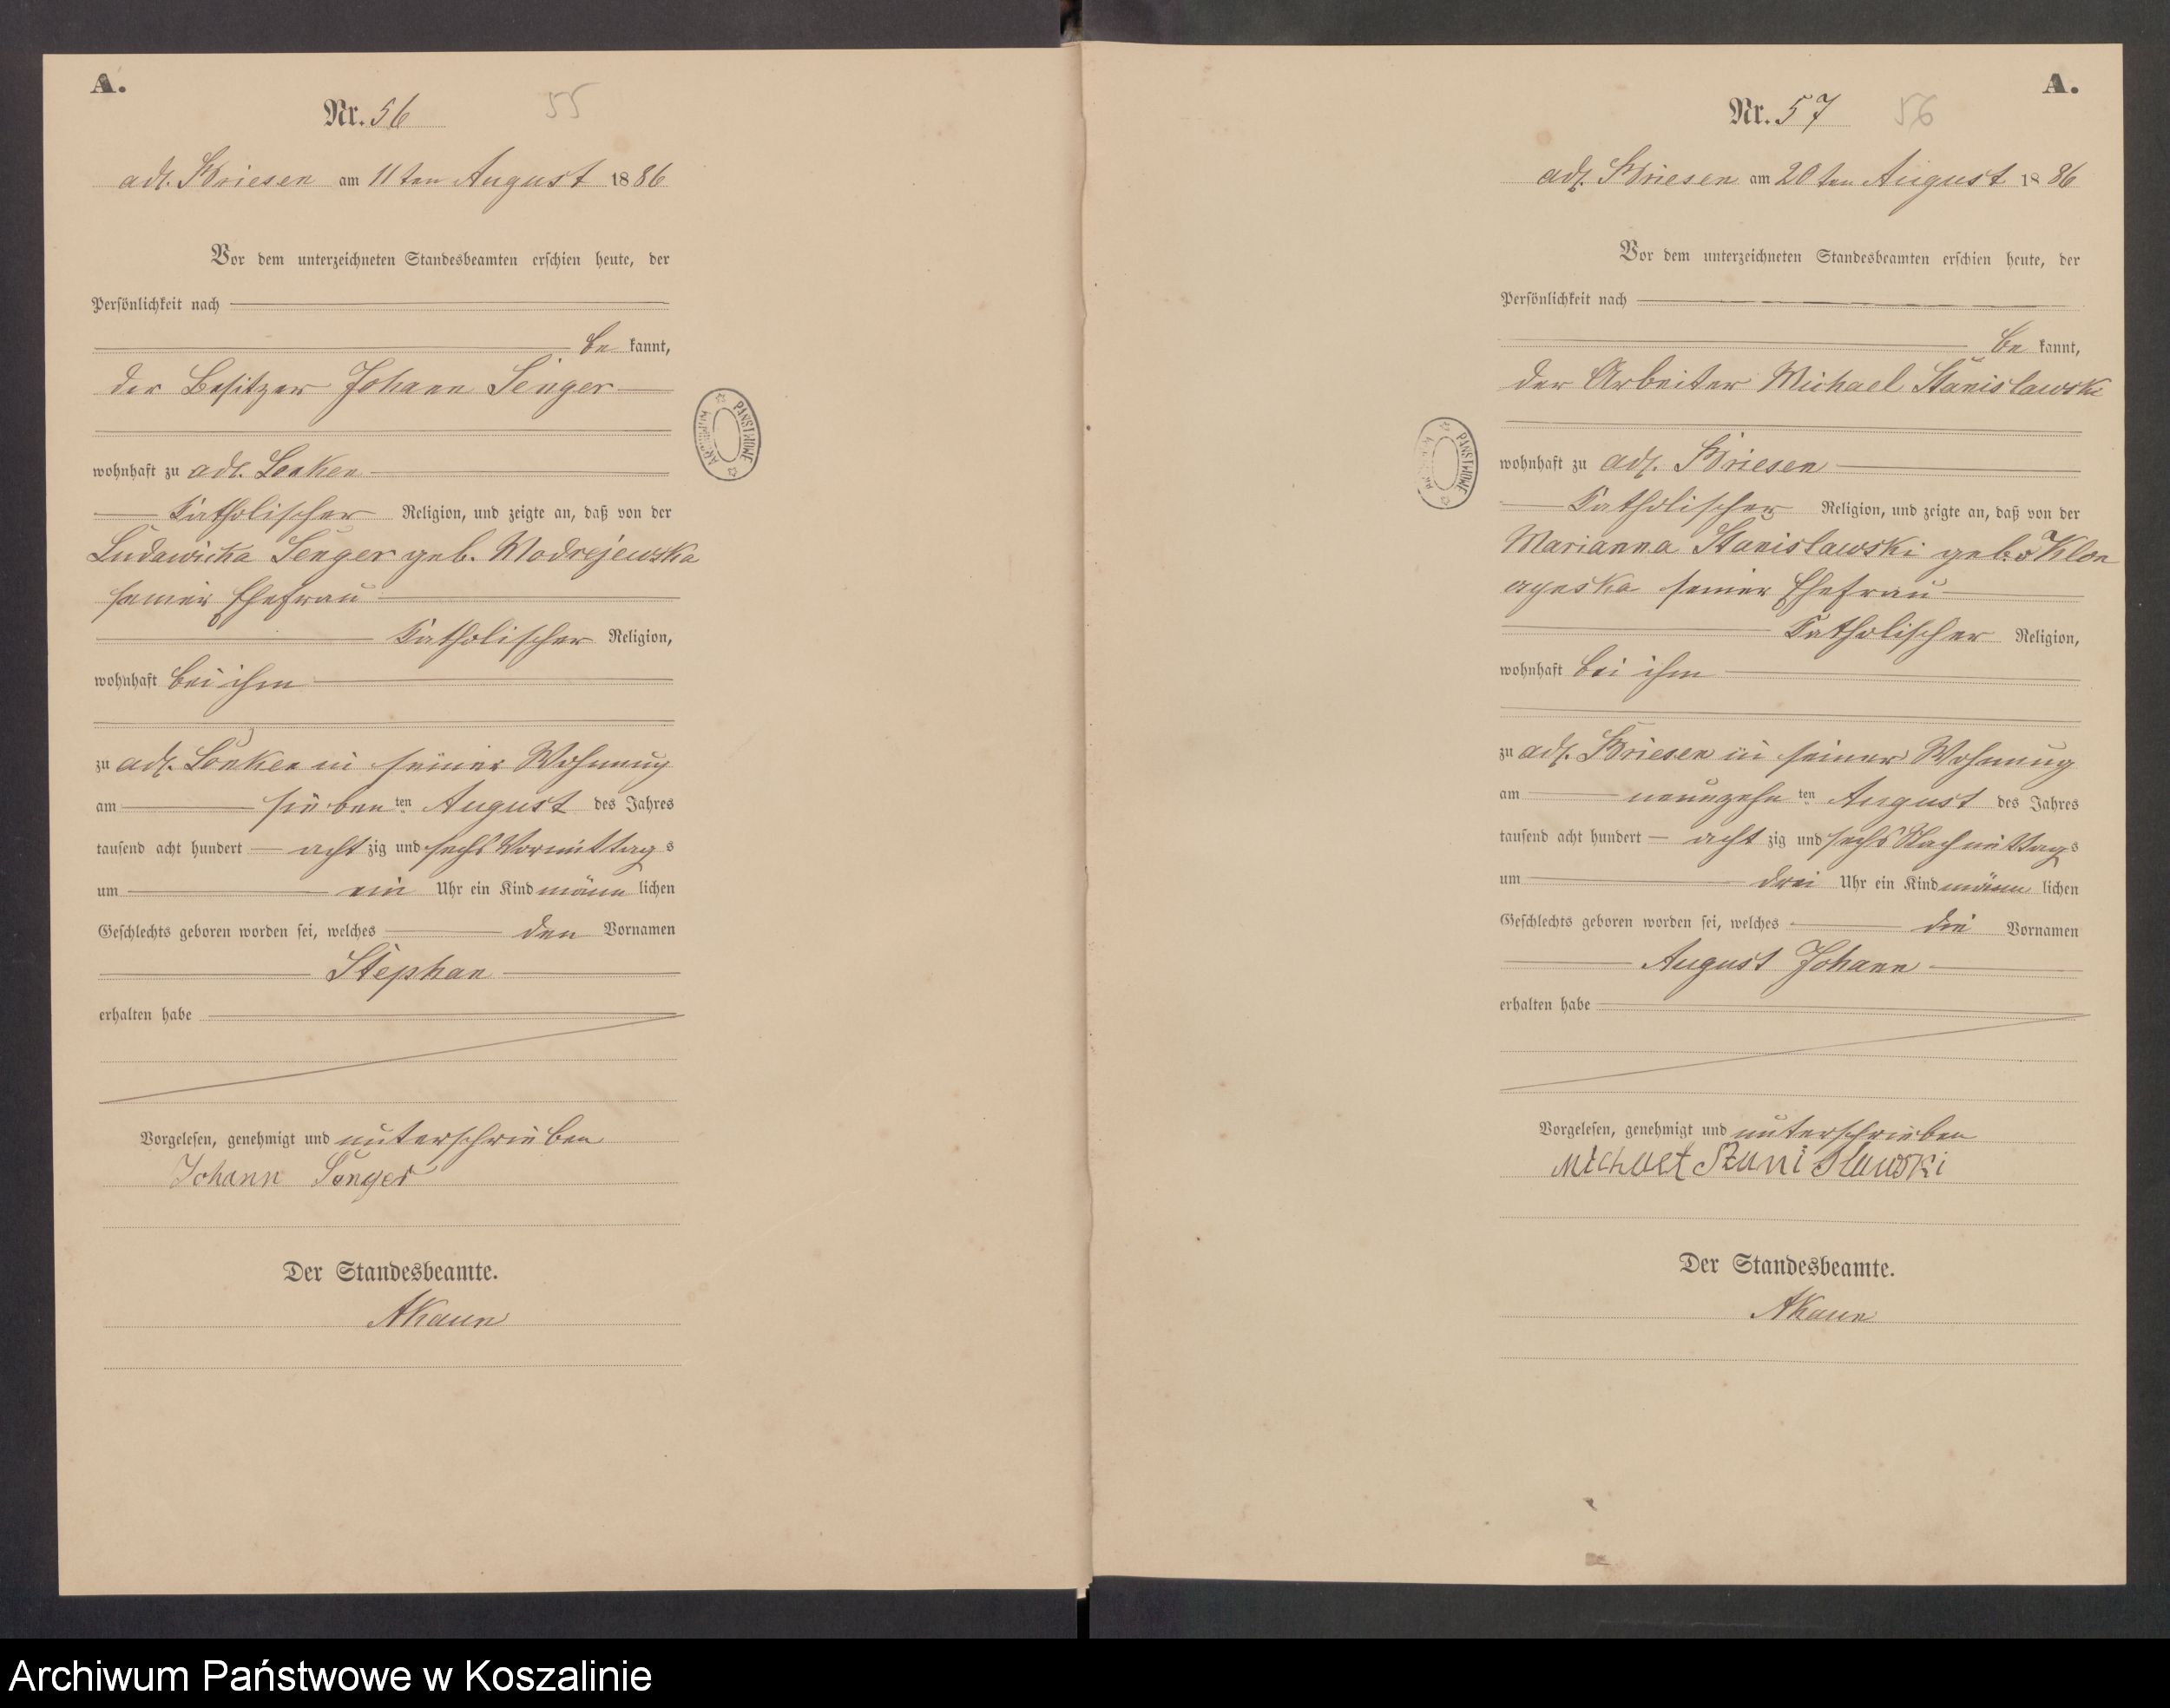 A.
Nr. 56
55
adl. Briesen am 11ten August 1886
Vor dem unterzeichneten Standesbeamten erschien heute, der
Persönlichkeit nach
be kannt,
der Besitzer Johann Senger
wohnhaft zu adl. Lonken
Katholischer Religion, und zeigte an, daß von der
Ludowicka Senger geb. Modrejewska
seiner Ehefrau
Katholischer Religion,
wohnhaft bei ihm
zu adl. Lonken in seiner Wohnung
am sieben ten August des Jahres
tausend acht hundert acht zig und sechs Vormittag s
um ein Uhr ein Kind männ lichen
Geschlechts geboren worden sei, welches den Vornamen
Stephan
erhalten habe
Vorgelesen, genehmigt und unterschrieben
Johann Senger
Der Standesbeamte.
AKaun
PAŃSTWOWE
A.
Nr. 57
56
adl. Briesen am 20ten August 1886
Vor dem unterzeichneten Standesbeamten erschien heute, der
Persönlichkeit nach
be kannt,
der Arbeiter Michael Stanislawski
wohnhaft zu adl. Briesen
Katholischer Religion, und zeigte an, daß von der
Marianna Stanislawski geb. v Klon
ayeska seiner Ehefrau
Katholischer Religion,
wohnhaft bei ihm
zu adl. Briesen in seiner Wohnung
am neunzehn ten August des Jahres
tausend acht hundert acht zig und sechs Nachmittag s
um drei Uhr ein Kind männ lichen
Geschlechts geboren worden sei, welches die Vornamen
August Johann
erhalten habe
Vorgelesen, genehmigt und unterschrieben
Michaet Stanislawski
Der Standesbeamte.
AKaun
PAŃSTWOWE
Archiwum Państwowe w Koszalinie